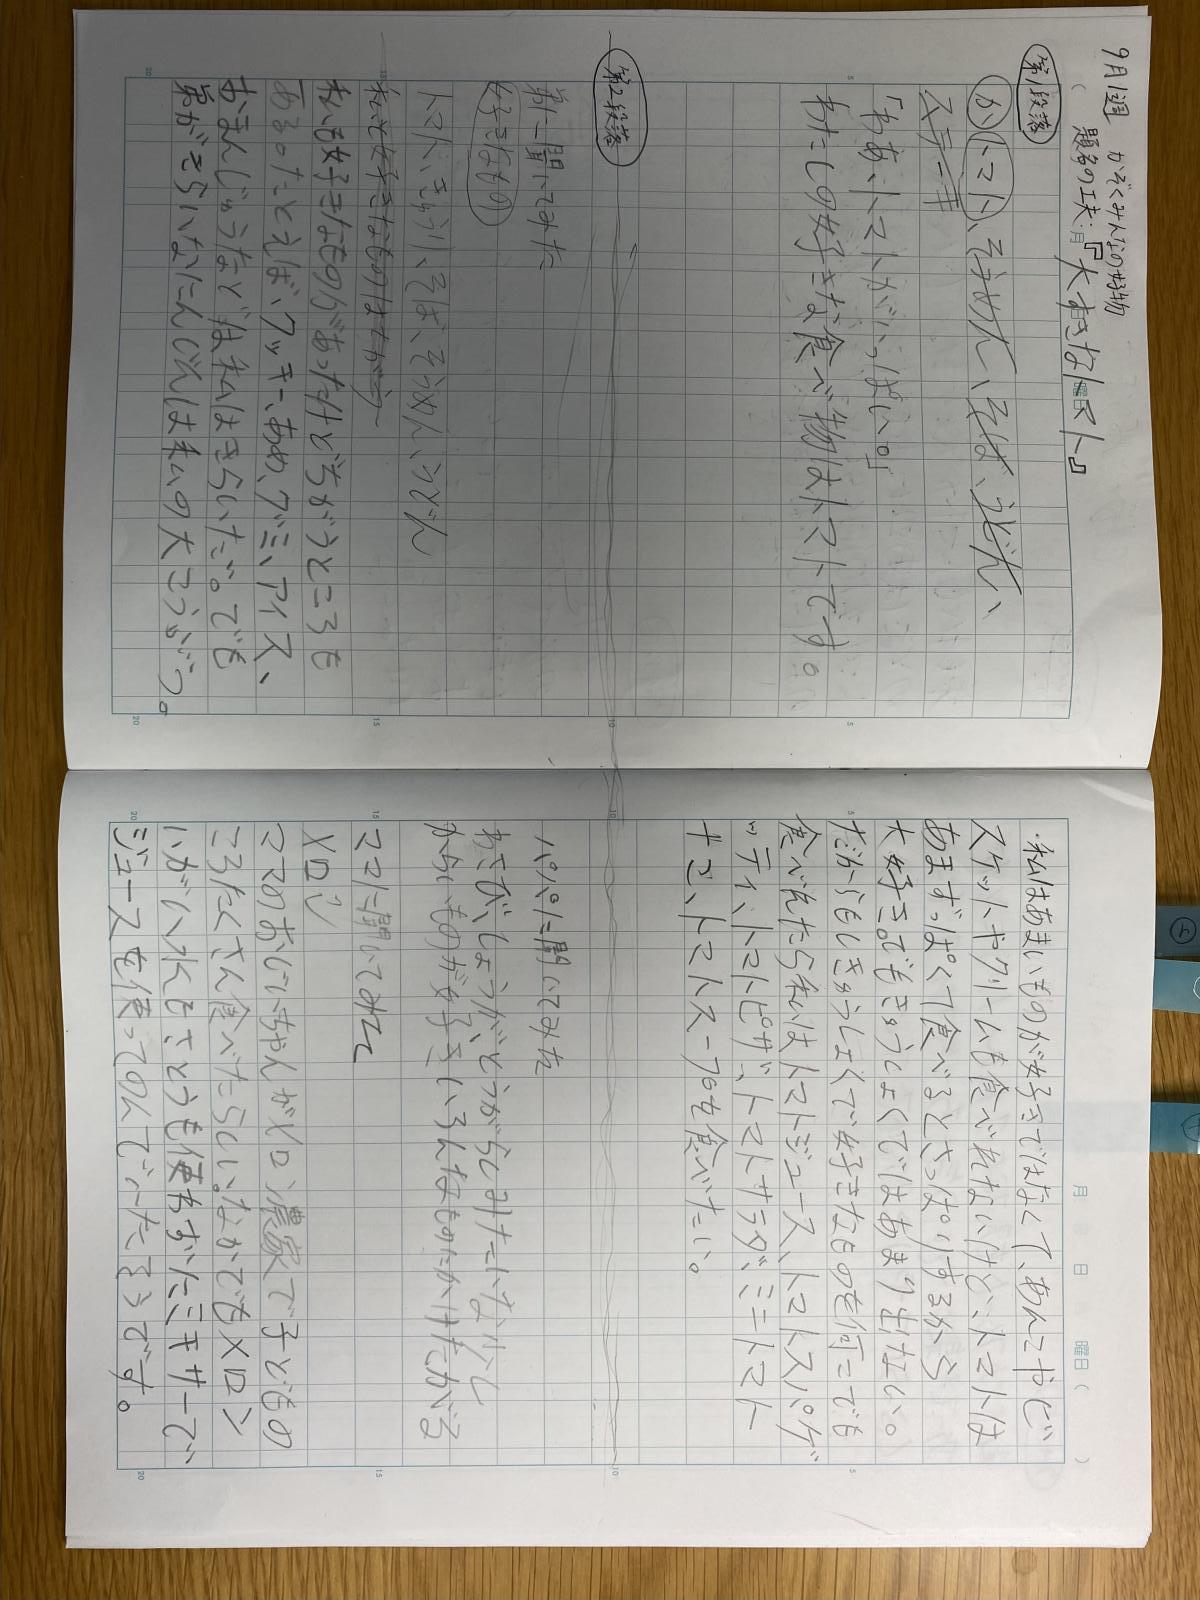 9月1週 かぞくみんなの好物
題名の工夫:『大すきなトマト』
第1段落
トマト、そうめん、そば、うどん、
ステーキ
「わあ、トマトがいっぱい。」
わたしの好きな食べ物はトマトです。
第2段落
弟に聞いてみた
好きなもの
トマト、きゅうり、そば、そうめん、うどん
私も好きなものはてがう
私も好きなものがあったけどちがうところも
ある。たとえば、クッキー、あめ、グミ、アイス、
おまんじゅうなどは私はきらいだ。でも
弟がきらいなたんじんは私の大こうぶつ。
・私はあまいものが好きではなくて、あんこやビ
スケットやクリームも食べれないけど、トマトは
あまずっぱくて食べるとさっぱりするから
大好き。でもきゅうしょくではあまり出ない。
だからもしきゅうしょくで好きなものを何こでも
食べれたら私はトマトジュース、トマトスパゲ
ッティ、トマトピザ、トマトサラダ、ミニトマト
ナゴ、トマトスープを食べたい。
パパに聞いてみた
わさび、しょうが、とうがらしみたいな少し
からいものが好き
ママに聞いてみた
メロン
ママのおじいちゃんがメロン農家で子どもの
ころたくさん食べたらしい。なかでもメロン
ジュースを使ってのんでいたそうです。